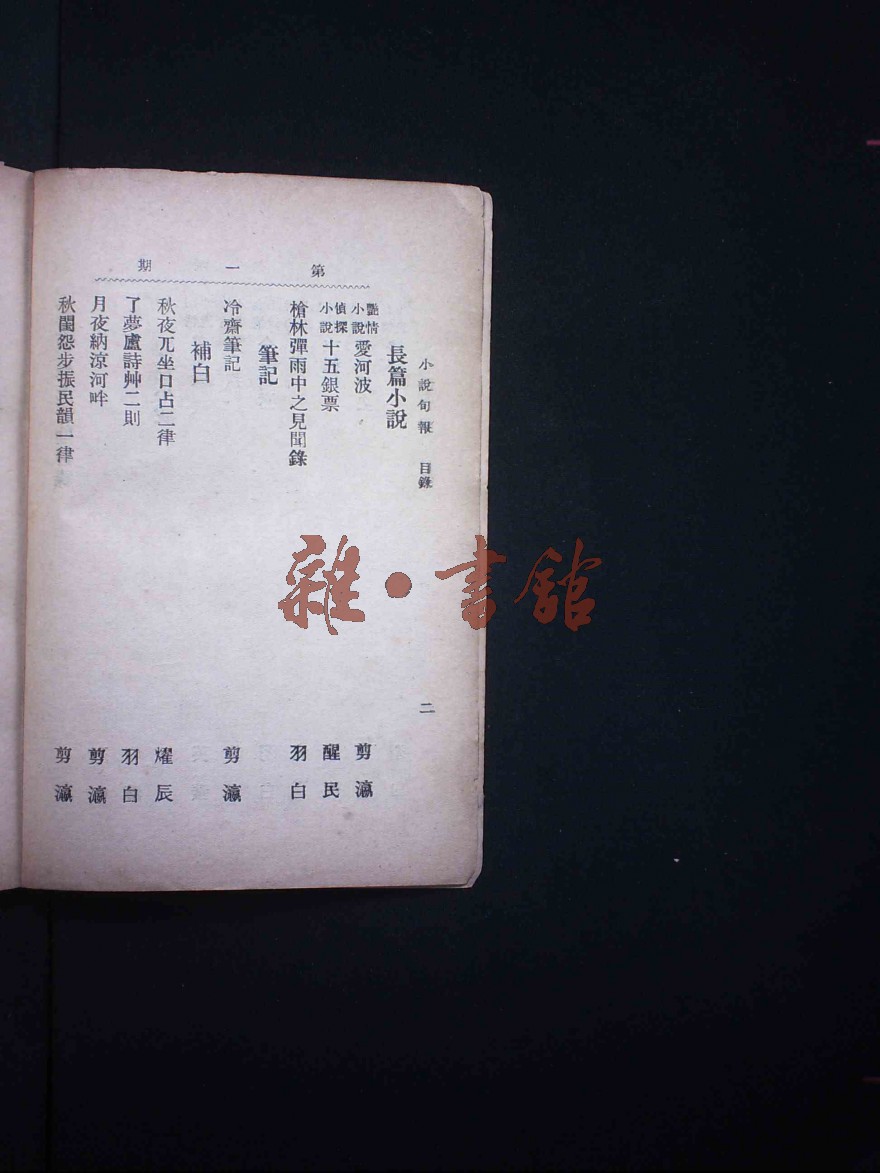 第一期
小說旬報 目錄 二
長篇小說
艷情小說 愛河波 剪瀛
偵探小說 十五銀票 醒民
槍林彈雨中之見聞錄 羽白
筆記
冷齋筆記 剪瀛
補白
秋夜兀坐口占二律 燿辰
了夢盧詩艸二則 羽白
月夜納涼河畔 剪瀛
秋閨怨步振民韻一律 剪瀛
雜·書館